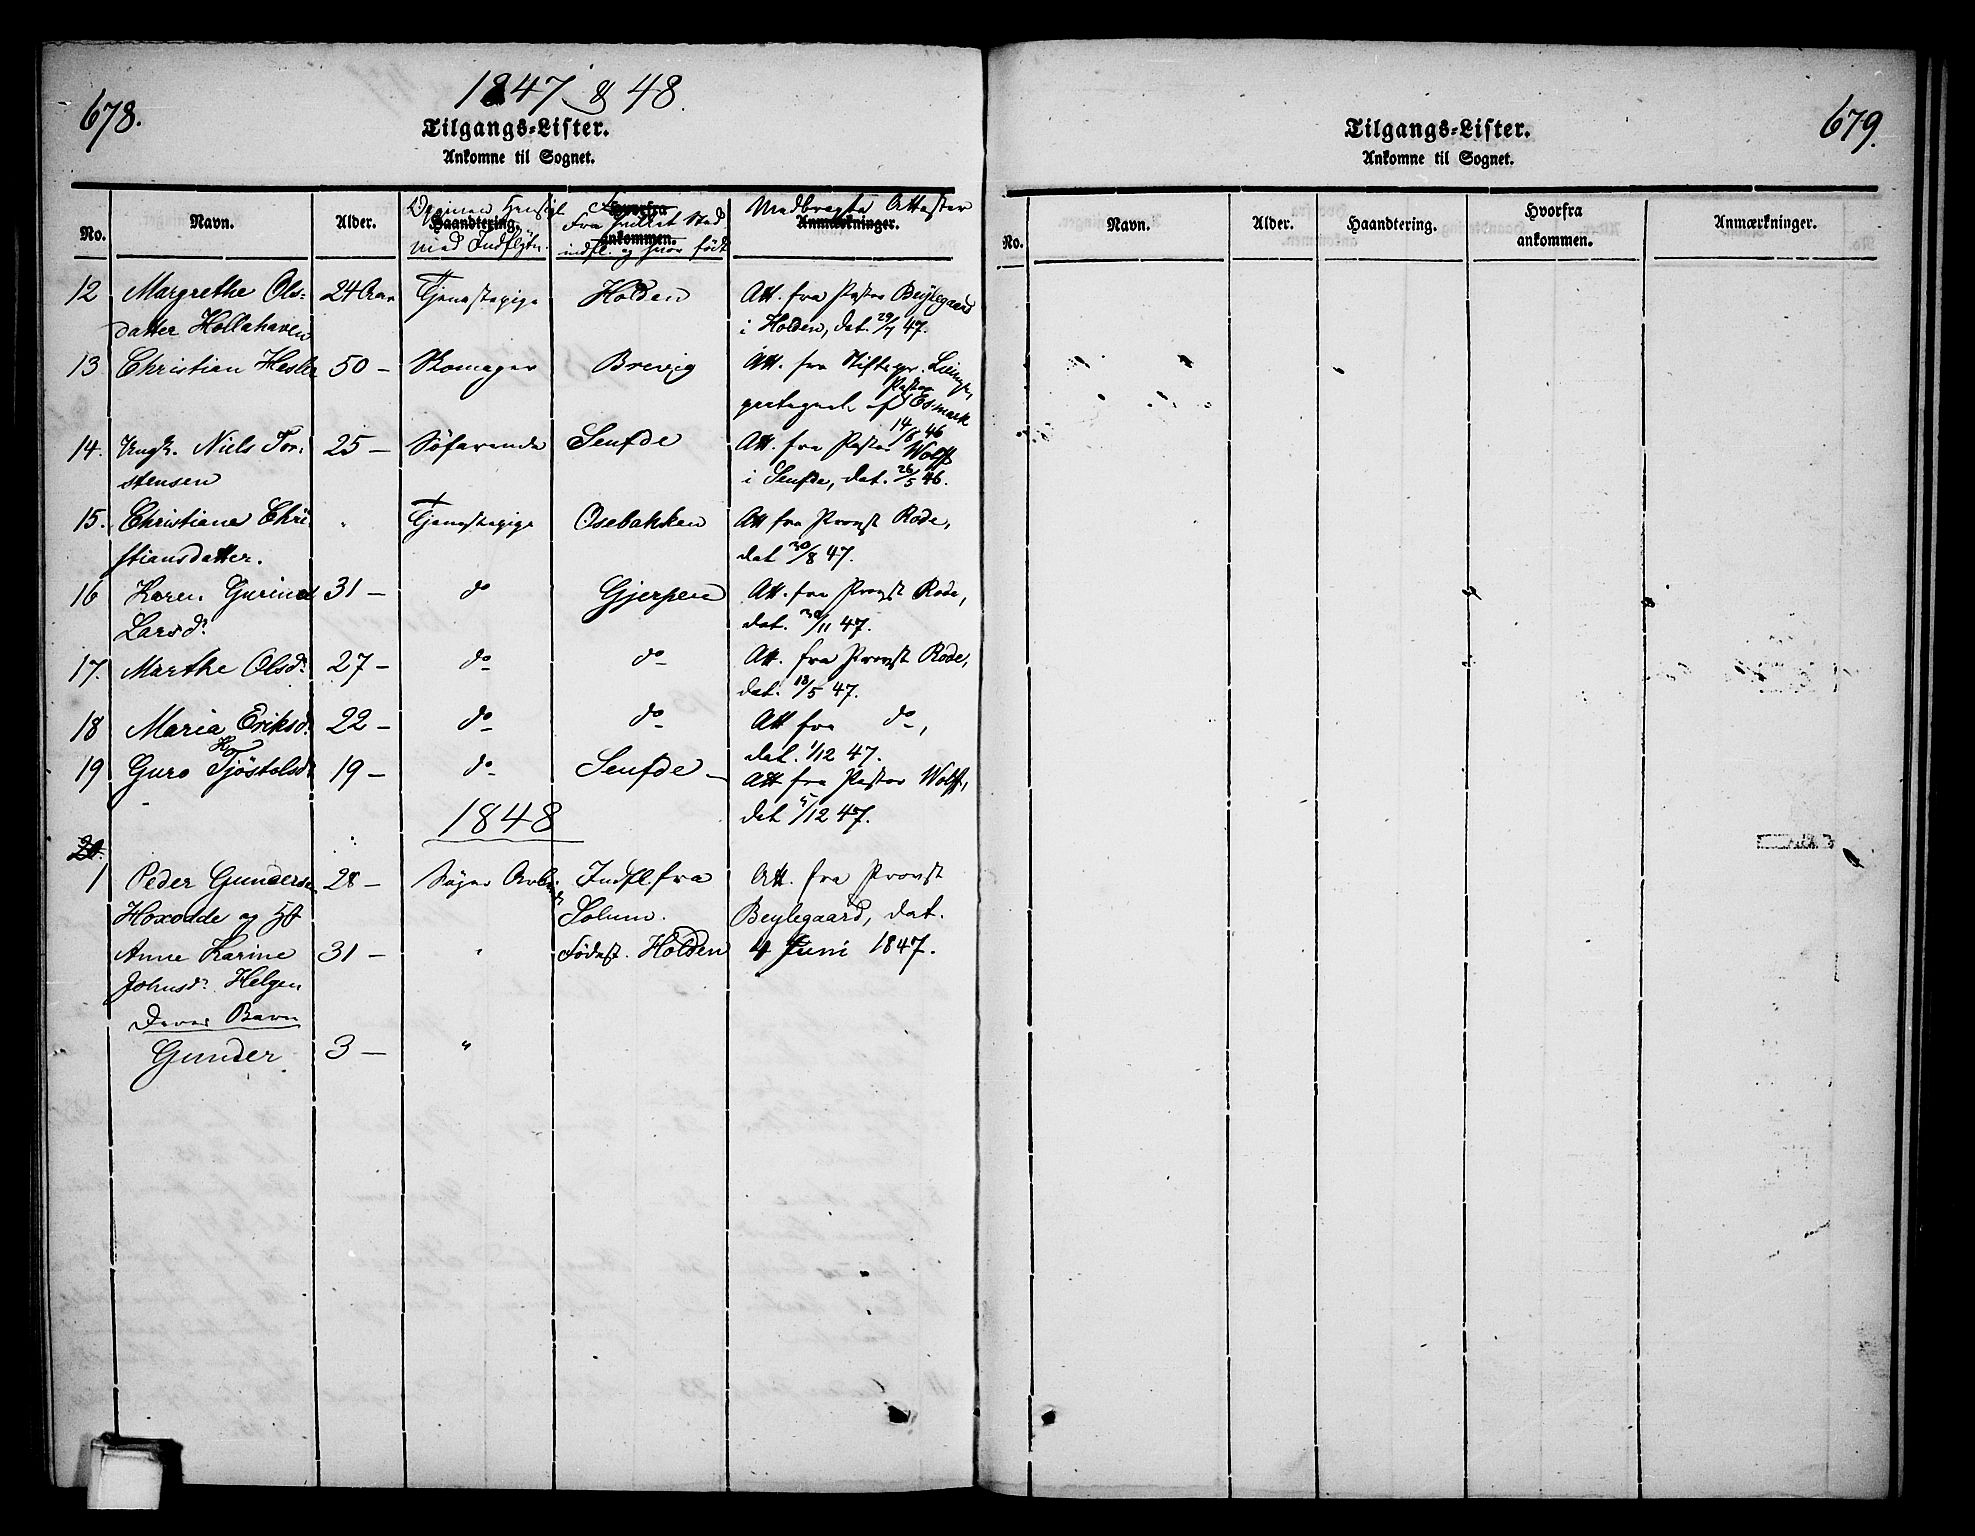 678.
1847 & 48.
Tilgangs-Lister.
Ankomne til Sognet.
No. Navn. Alder. Haandtering. Hvorfra ankommen. Anmærkninger.
med Indflytn. Fra hvilket Sted indfl. og hvor født Medbragte Attester
12 Margrethe Ols- 24 Aar Tjenestepige Holden Att. fra Pastor Beylegaard
datter Hollahaven i Holden, dat. 29/7 47.
13 Christian Hesler 50 – Skomager Brevig Att. fra Stiftspr.
Pastor Esmark
14/8 46
14. Ungk. Niels Tor- 25 – Søfarende Seufde Att. fra Pastor Wolff
stensen i Seufde, dat. 26/5 46.
15. Christiane Chri- " Tjenestepige Osebakken Att fra Provst Rode,
stiansdatter. dat 30/8 47.
16 Karen Gurine 31 – do Gjerpen Att. fra Provst Rode,
Larsdr. dat. 30/11 47.
17. Marthe Olsdr. 27 – do do Att. fra Provst Rode,
dat. 18/5 47.
18 Maria Eriksdr. 22 – do do Att fra do,
dat. 1/12 47.
19 Guro Tjöstolsdr 19 – do Seufde – Att fra Pastor Wolff,
dat 5/12 47.
1848
20.
1 Peder Gundersen 28 – Søger Arbeide Indfl. fra Att. fra Provst
Hoxodde og Solum. Beylegaard, dat.
Anne Karine 31 – " Fødest. Holden 4 Juni 1847.
Johnsdr. Helgen
Deres Barn
Gunder 3 – "
679.
Tilgangs-Lister.
Ankomne til Sognet.
No. Navn. Alder. Haandtering. Hvorfra ankommen. Anmærkninger.